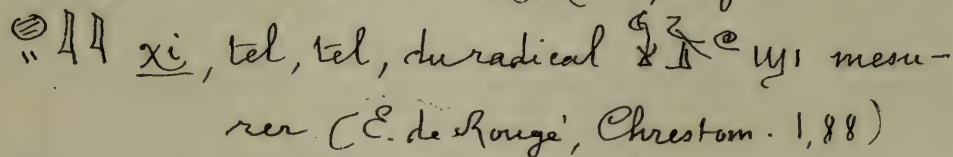 𓐍𓏭𓇋𓇋 xi, tel, tel, du radical ϣι mesu-
rer (E. de Rougé, Chrestom. 1,88)